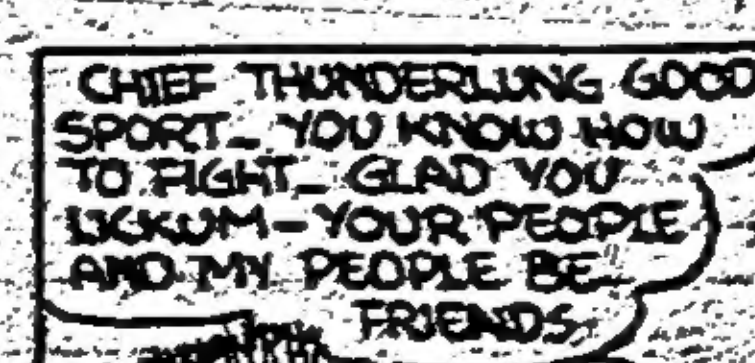 CHIEF THUNDERLUNG GOOD
SPORT_ YOU KNOW HOW
TO FIGHT_ GLAD YOU
LICKUM-YOUR PEOPLE
AND MY PEOPLE BE
FRIENDS